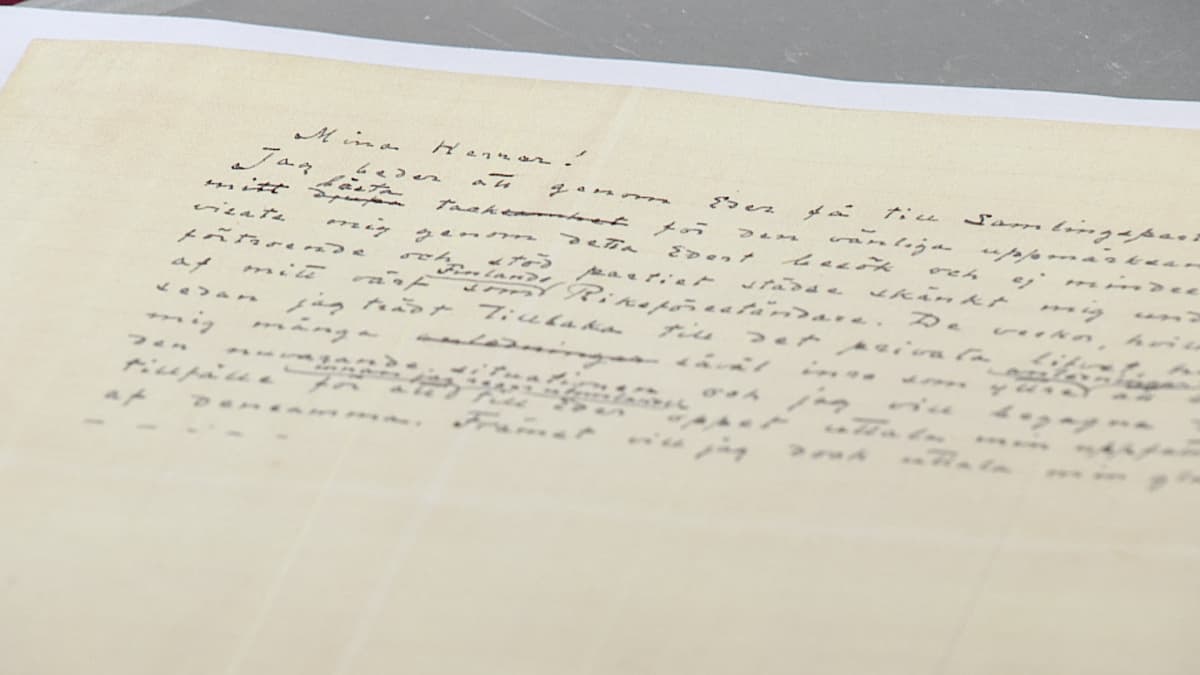 Mina Herrar!
Jag beder att genom Eder få till Samlingspar
bästa
mitt djupa tacksamhet för den vänliga uppmärksam
visats mig genom detta Edert besök och ej mindre
förtroende och stöd partiet städse skänkt mig und
Finlands
af mitt värf som Riksföreståndare. De veckor, hvil
sedan jag trädt tillbaka till det privata lifvet,
mig många anledningar såväl inre som yttre att
den nuvarande situationen och jag vill begagna
innan jag reser utomlands
tillfälle för att till Eder öppet uttala min uppfatt
af densamma. Främst vill jag dock uttala min gl